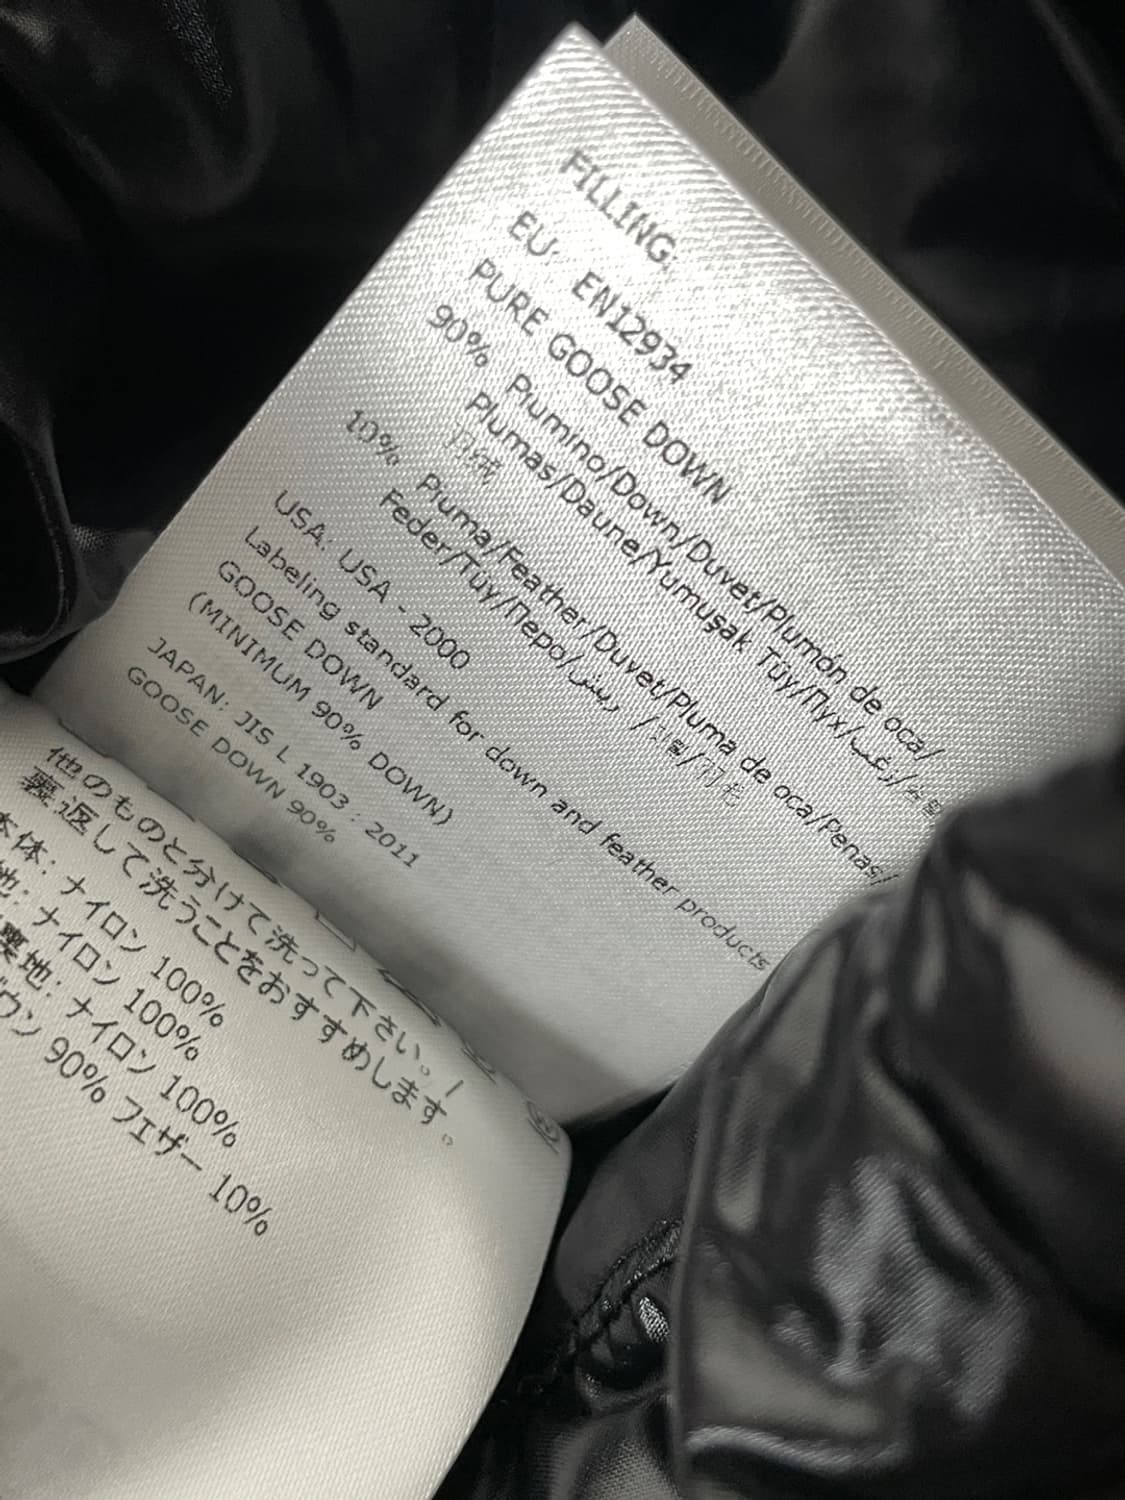 FILLING:
EU: EN12934
PURE GOOSE DOWN
90% Piumino/Down/Duvet/Plumón de oca/
Plumas/Daune/Yumuşak Tüy/Пух/زغب/솜털/
羽绒
10% Piuma/Feather/Duvet/Pluma de oca/Penas/
Feder/Tüy/Перо/ريش/깃털/羽毛
USA: USA - 2000
Labeling standard for down and feather products
GOOSE DOWN
(MINIMUM 90% DOWN)
JAPAN: JIS L 1903 : 2011
GOOSE DOWN 90%
他のものと分けて洗って下さい。/
裏返して洗うことをおすすめします。
本体: ナイロン 100%
地: ナイロン 100%
裏地: ナイロン 100%
ダウン 90% フェザー 10%